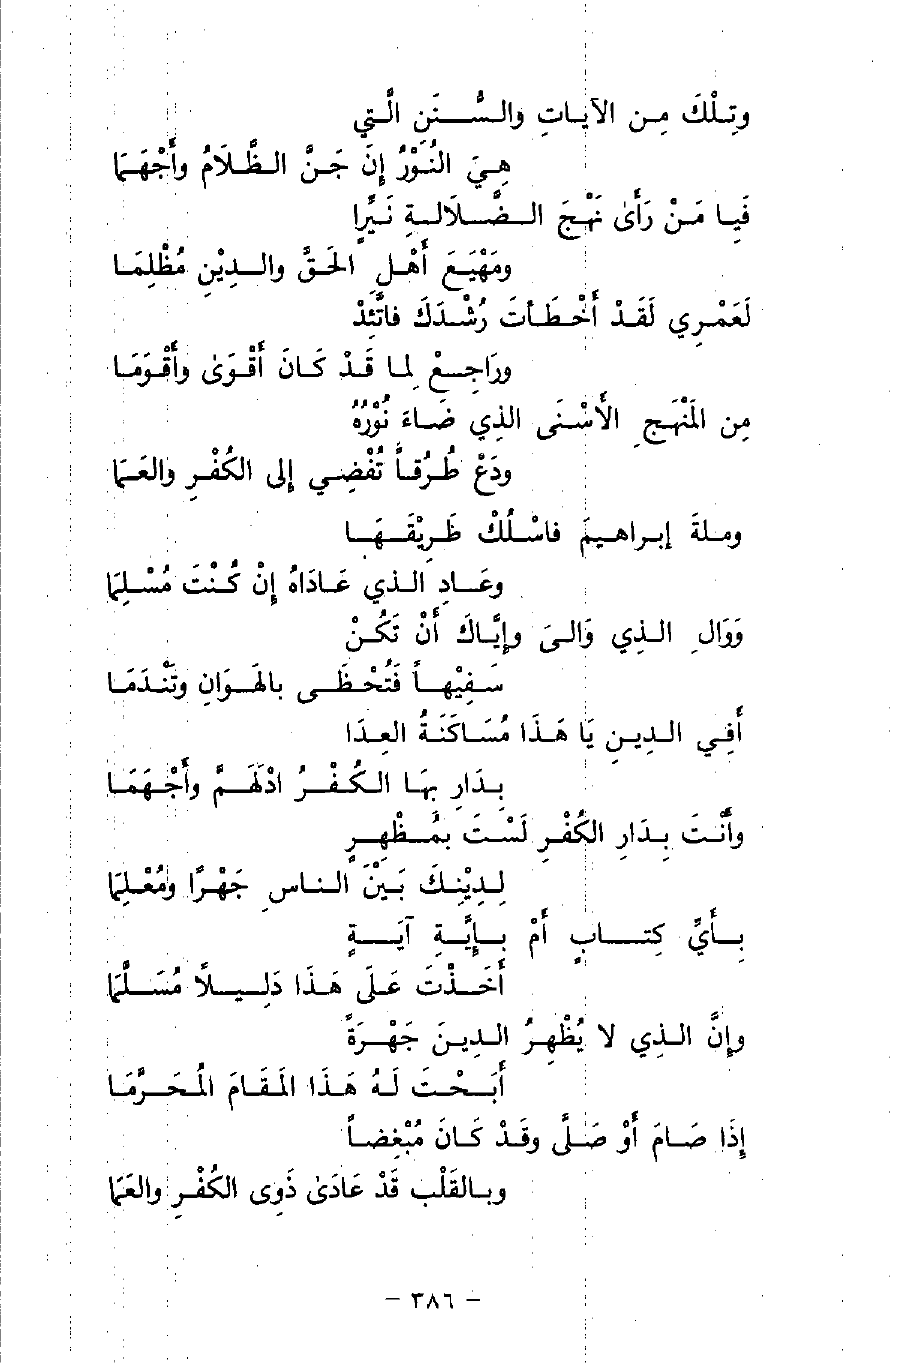 وتلْكَ مِن الآيَاتِ والسُّنَنِ الَّتِي
هِيَ النُّوْرُ إِنْ جَنَّ الظَّلَامُ وأَجْهَمَا
فَيَا مَنْ رَأَىٰ نَهْجَ الضَّلَالَةِ نَيِّرًا
ومَهْيَعَ أَهْلِ الحَقِّ والدِيْنِ مُظْلِمَا
لَعَمْرِي لَقَدْ أَخْطَأتَ رُشْدَكَ فاتَّئِدْ
ورَاجِعْ لِمَا قَدْ كَانَ أَقْوَىٰ وأَقْوَمَا
مِن المَنْهَجِ الأَسْنَى الذِي ضَاءَ نُوْرُهُ
ودَعْ طُرُقاً تُفْضِي إلى الكُفْرِ والعَمَا
ومِلةَ إبراهيمَ فاسْلُكْ طَرِيْقَهَا
وعَادِ الذي عَادَاهُ إِنْ كُنْتَ مُسْلِمَا
وَوَالِ الذِي وَالىَ وإيَّاكَ أَنْ تَكُنْ
سَفِيْهاً فَتُحْظَى بالهَوَانِ وتَنْدَمَا
أَفِي الدِينِ يَا هَذَا مُسَاكَنَةُ العِدَا
بِدَارٍ بِهَا الكُفْرُ ادْلَهَمَّ وأَجْهَمَا
وأَنْتَ بِدَارِ الكُفْرِ لَسْتَ بِمُظْهِرٍ
لِدِيْنِكَ بَيْنَ الناسِ جَهْرًا ومُعْلِمَا
بِأَيِّ كِتَابٍ أَمْ بِإِيَّةِ آيَةٍ
أَخَذْتَ عَلَى هَذَا دَلِيلًا مُسَلَّمَا
وإنَّ الذِي لا يُظْهِرُ الدِينَ جَهْرَةً
أَبَحْتَ لَهُ هَذَا المَقَامَ المُحَرَّمَا
إِذَا صَامَ أَوْ صَلَّى وقَدْ كَانَ مُبْغِضاً
وبالقَلْبِ قَدْ عَادَىٰ ذَوِى الكُفْرِ والعَمَا
- ٣٨٦ -